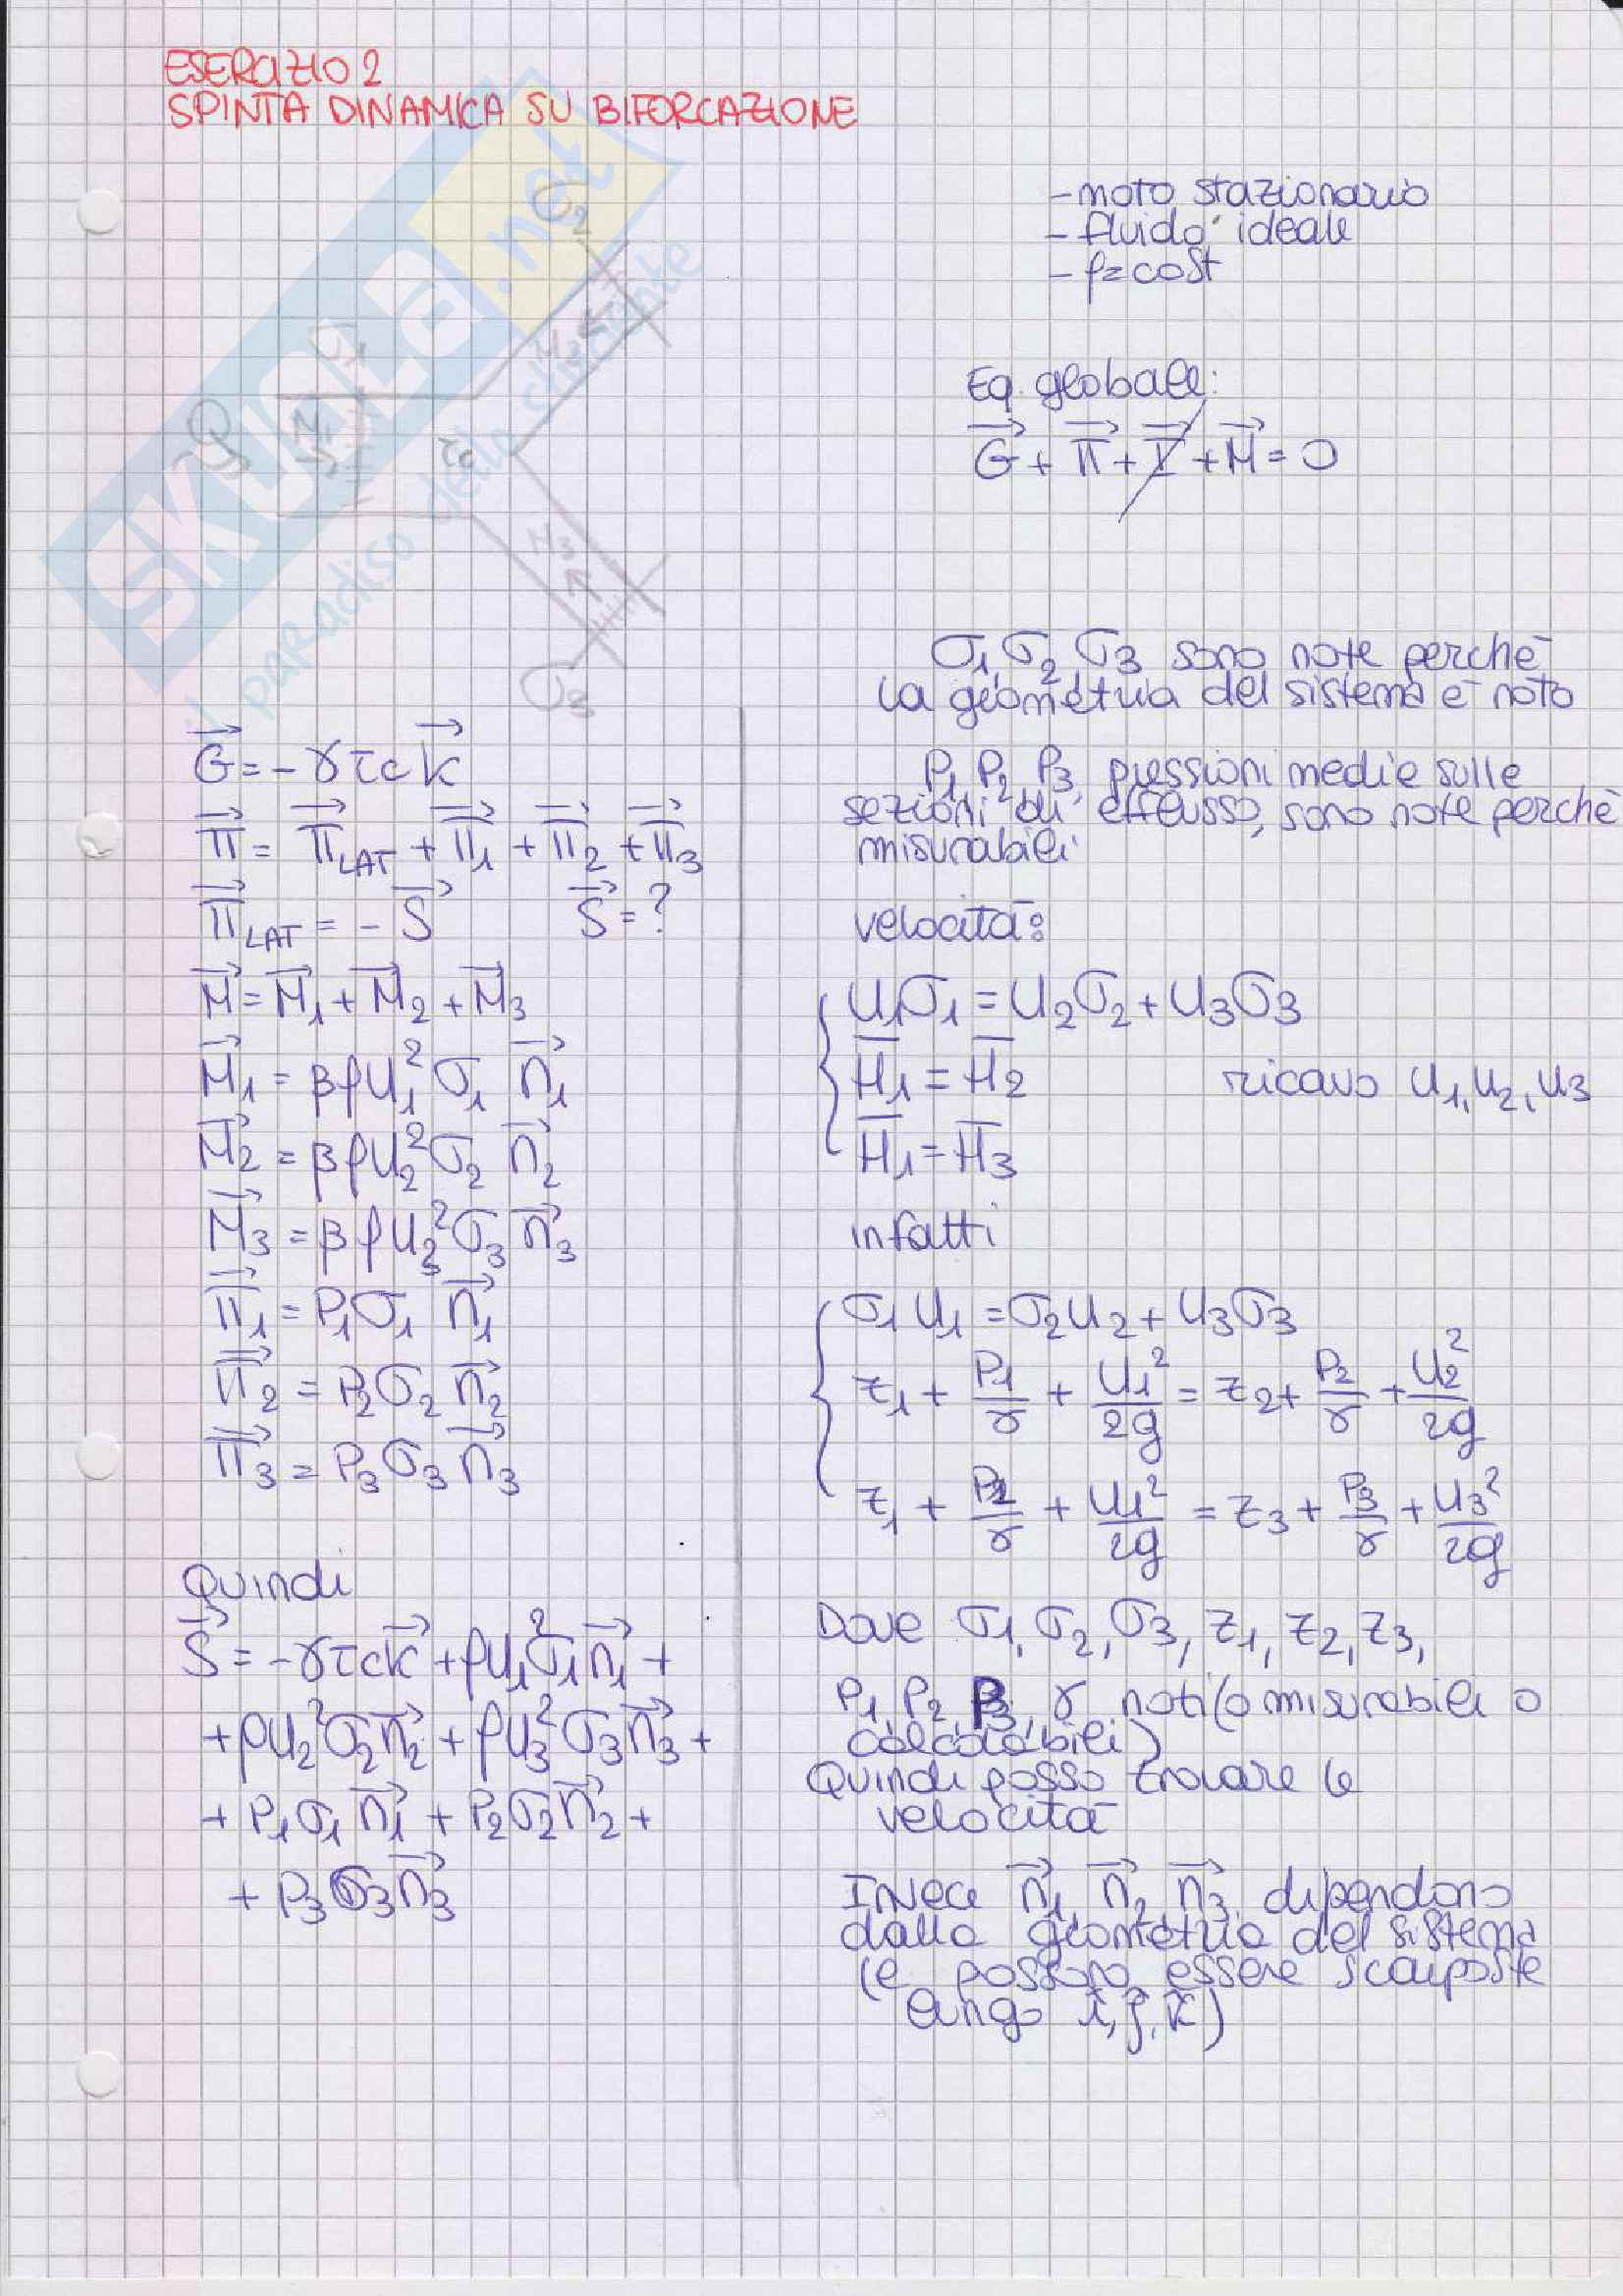 ESERCIZIO 2
SPINTA DINAMICA SU BIFORCAZIONE
- moto stazionario
- fluido ideale
- ρ=cost
Eq. globale:
G⃗ + Π⃗ + I⃗ + M⃗ = 0
Q
σ1
σ2
σ3
n1
n2
n3
τc
SKUOLA.net
il paradiso dello studente
σ1, σ2, σ3 sono note perchè
la geometria del sistema è noto
P1, P2, P3, pressioni medie sulle
sezioni di efflusso, sono note perchè
misurabili
velocità:
{ U1σ1 = U2σ2 + U3σ3
H̅1 = H̅2
H̅1 = H̅3
ricavo U1, U2, U3
infatti
{ σ1U1 = σ2U2 + U3σ3
z1 + P1/γ + U1²/2g = z2 + P2/γ + U2²/2g
z1 + /γ + U1²/2g = z3 + P3/γ + U3²/2g
Dove σ1, σ2, σ3, z1, z2, z3,
P1, P2, P3, γ noti (o misurabili o
calcolabili)
Quindi posso trovare le
velocità
Invece n⃗1, n⃗2, n⃗3, dipendono
dalla geometria del sistema
(e possono essere scomposte
lungo i, j, k)
G⃗ = -γτc k⃗
Π⃗ = Π⃗LAT + Π⃗1 + Π⃗2 + Π⃗3
Π⃗LAT = - S⃗ S⃗ = ?
M⃗ = M⃗1 + M⃗2 + M⃗3
M⃗1 = βρU1²σ1 n⃗1
M⃗2 = βρU2²σ2 n⃗2
M⃗3 = βρU3²σ3 n⃗3
Π⃗1 = P1σ1 n⃗1
Π⃗2 = P2σ2 n⃗2
Π⃗3 = P3σ3 n⃗3
Quindi
S⃗ = -γτc k⃗ + ρU1²σ1n⃗1 +
+ ρU2²σ2n⃗2 + ρU3²σ3n⃗3 +
+ P1σ1n⃗1 + P2σ2n⃗2 +
+ P3σ3n⃗3